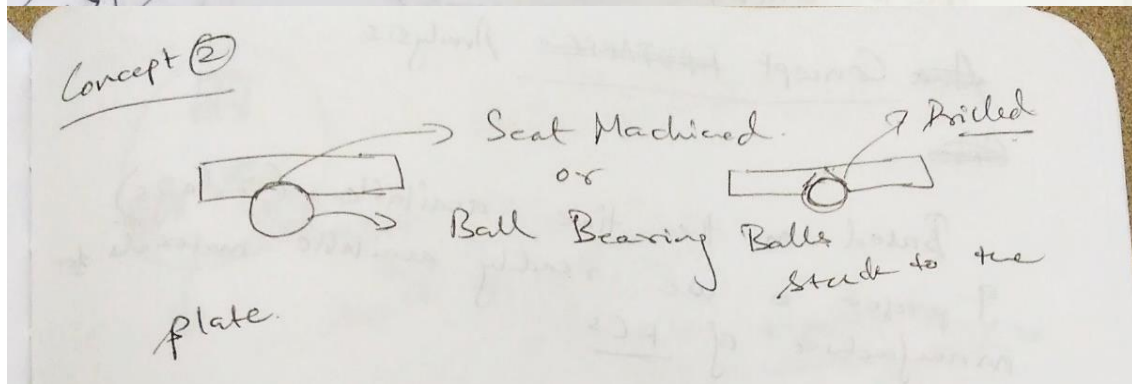 Concept ②
Seat Machined.
or
Drilled
Ball Bearing Balls
stuck to the
plate.